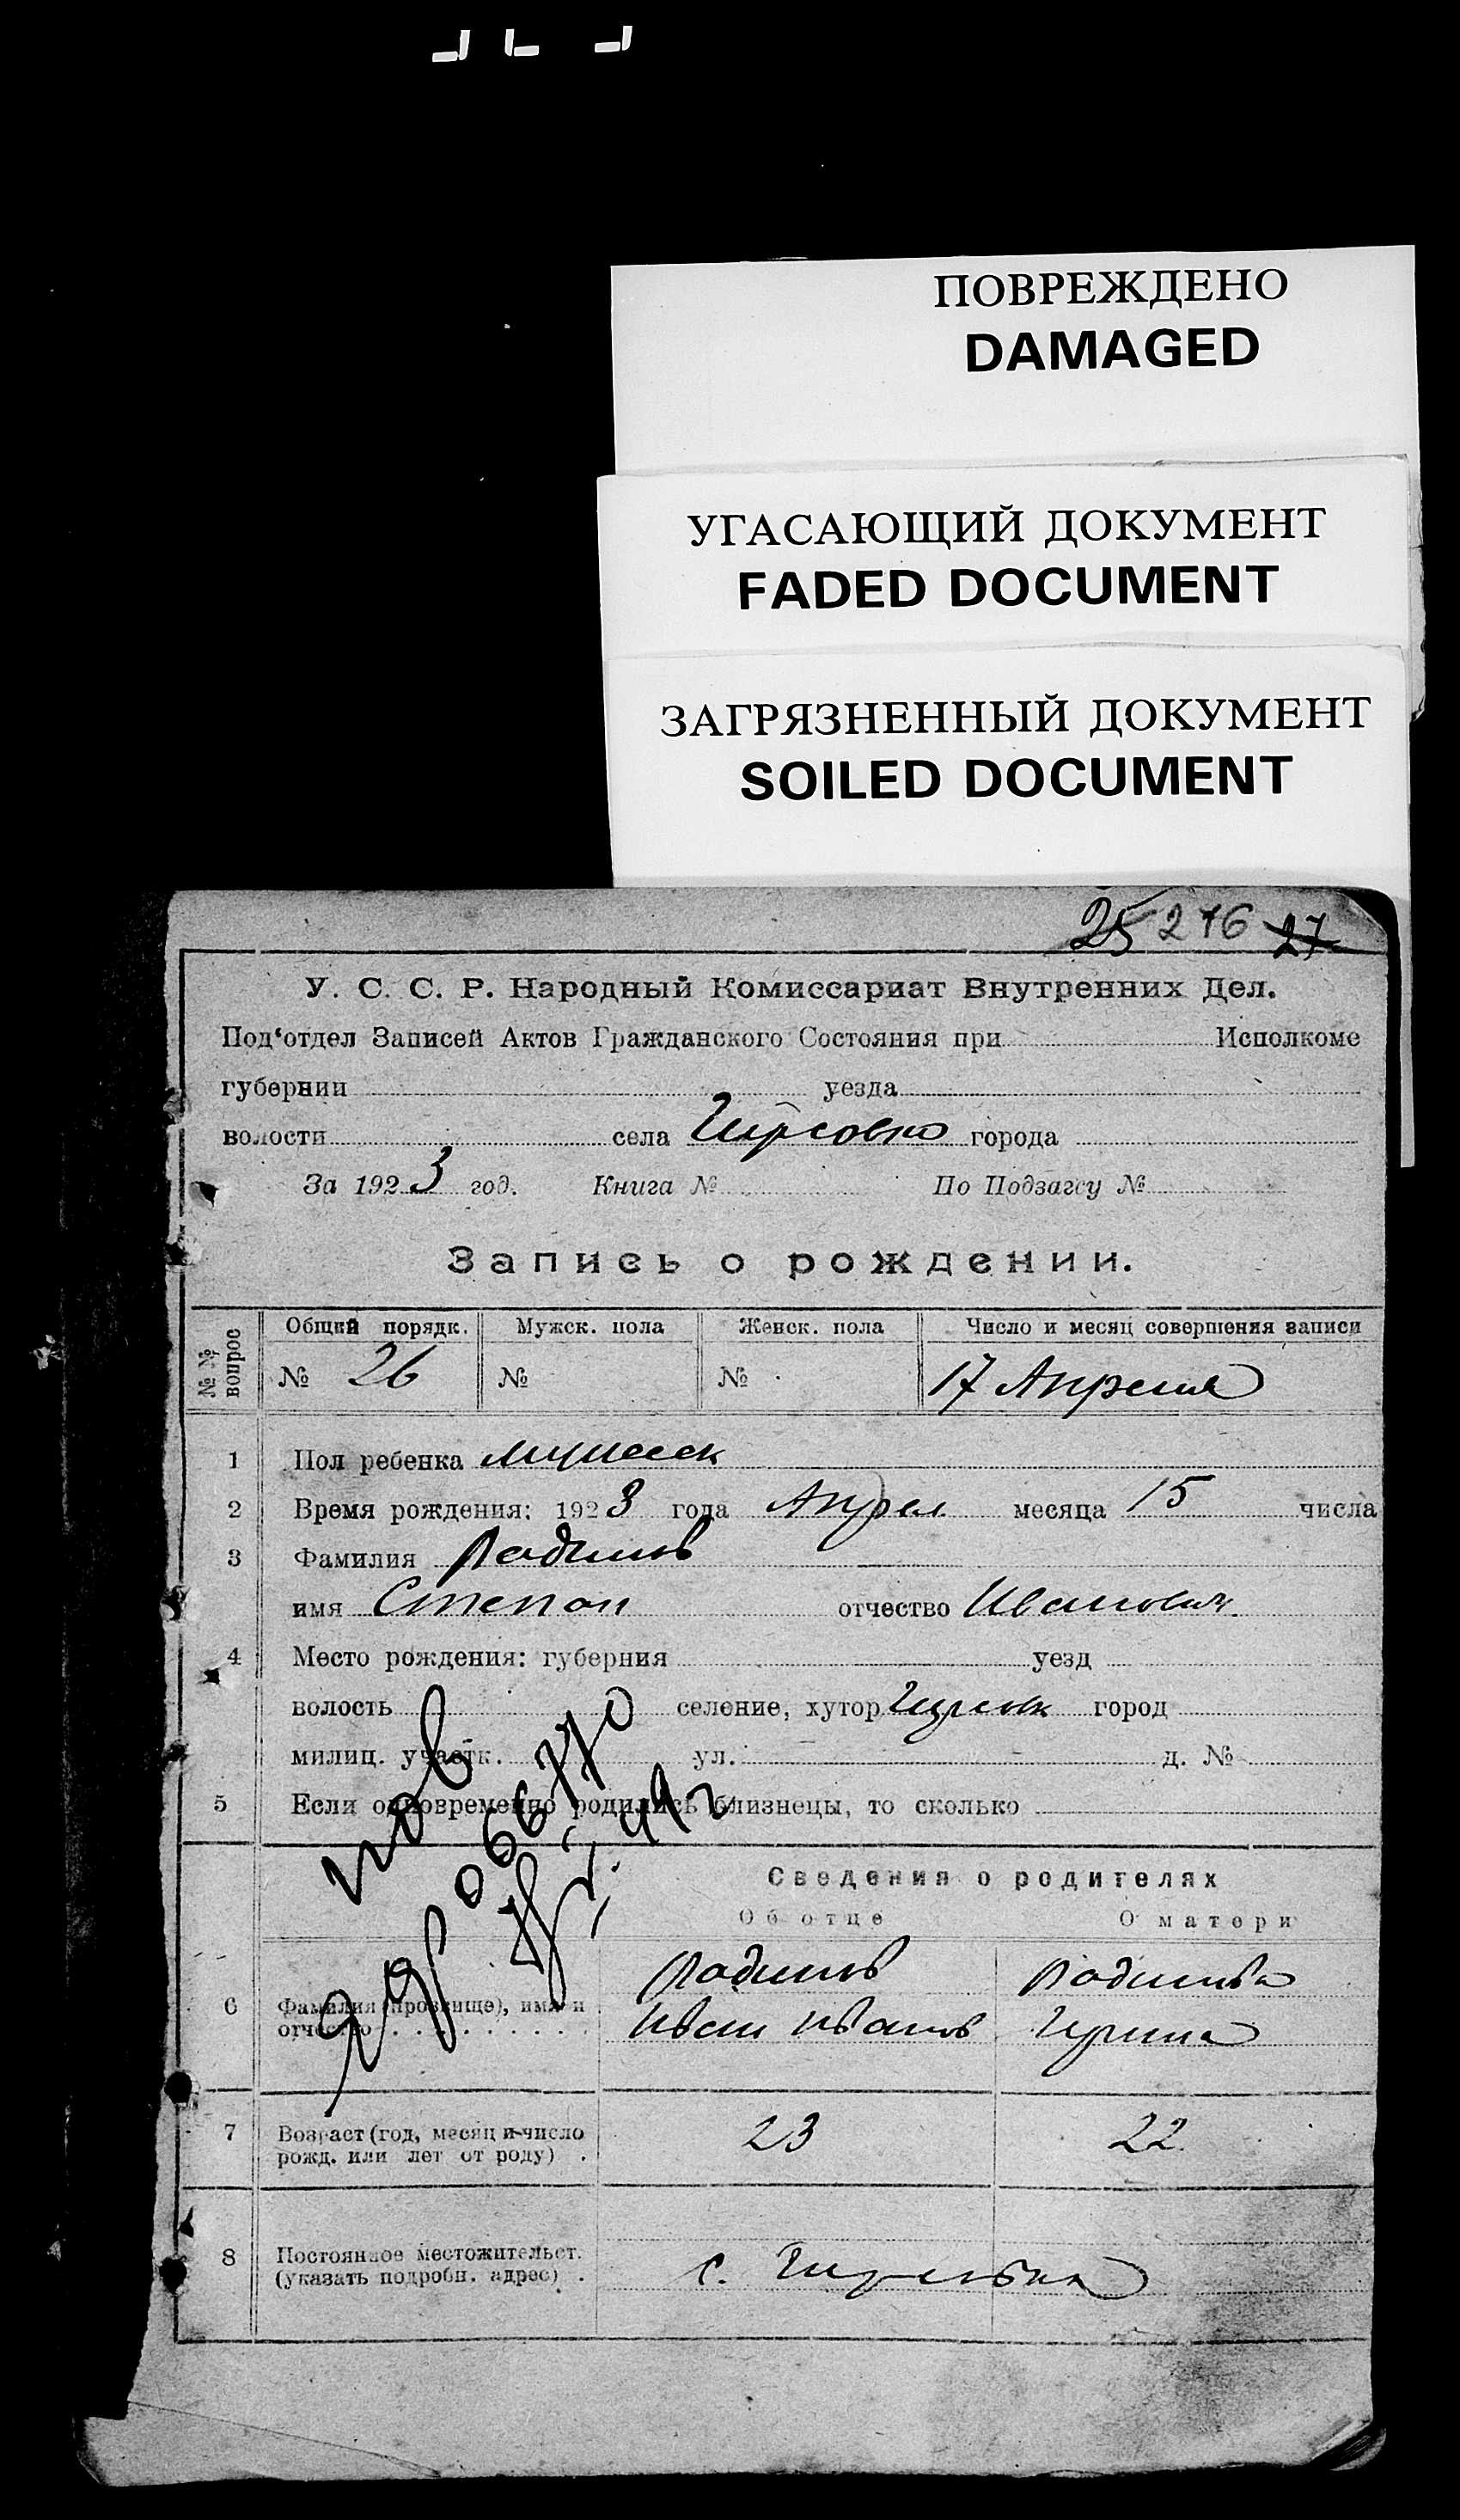 ПОВРЕЖДЕНО
DAMAGED
УГАСАЮЩИЙ ДОКУМЕНТ
FADED DOCUMENT
ЗАГРЯЗНЕННЫЙ ДОКУМЕНТ
SOILED DOCUMENT
25 276 27
У. С. С. Р. Народный Комиссариат Внутренних Дел.
Под‘отдел Записей Актов Гражданского Состояния при Исполкоме
губернии уезда
волости села города
За 1923 год. Книга № По Подзагсу №
Запись о рождении.
№№ вопрос Общий порядк. Мужск. пола Женск. пола Число и месяц совершения записи
№ 26 № № 17 Апреля
1 Пол ребенка мужеск
2 Время рождения: 1923 года Апрел месяца 15 числа
3 Фамилия Радинов
имя Степан отчество Иванович
4 Место рождения: губерния уезд
волость селение, хутор город
милиц. участк. ул. д. №
5 Если одновременно родились близнецы, то сколько
Сведения о родителях
Об отце О матери
Радинов Радинова
6 Фамилия (прозвище), имя и
отчество Иван Иванов
7 Возраст (год, месяц и число
рожд. или лет от роду) 23 22
8 Постоянное местожительст.
(указать подробн. адрес) с.